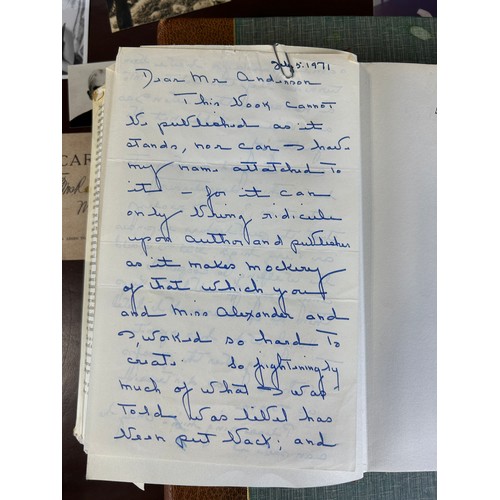 July 5. 1971
Dear Mr Anderson
This book cannot
be published as it
stands, nor can I have
my name attatched To
it – for it can
only bring ridicule
upon author and publisher
as it makes mockery
of that which you
and Miss Alexander and
I, worked so hard To
create. So frighteningly
much of what I was
Told was libel has
been put back; and
CAR